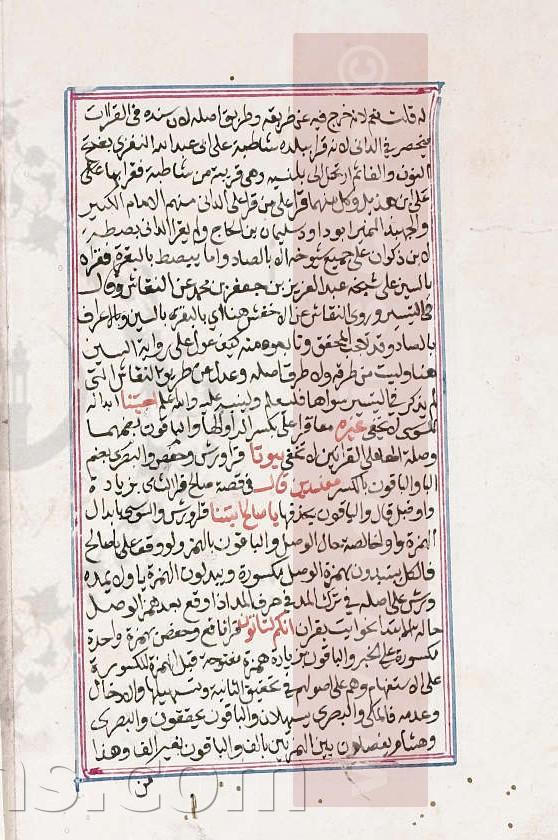 له قلت نعم لانه خرج فيه عن طريقه وطريق اصله لان سنده في القراءات
منحصر في الداني لانه قرا ببلده شاطبة على ابي عبد الله النفزي بفتح
النون والفاء ثم ارتحل الى بلنسية وهي قريبة من شاطبة فقرا بها على
علي بن هذيل وكل منهما قرا على من قرا على الداني منهم الامام الكبير
ابو داود سليمان بن نجاح ولم يقرا الداني بصطة
لابن ذكوان على جميع شيوخه الا بالصاد واما يبصط بالبقرة فقراه
بالسين على شيخه عبد العزيز بن جعفر بن محمد عن النقاش وقال
في التيسير وروى النقاش عن الاخفش هنا اي بالبقرة بالسين وبالاعراف
بالصاد وقد تعجب المحقق وتابعوه منه كيف عول على رواية السين
هنا وليست من طرقه ولا طرق اصله وعدل عن طريق النقاش التي
لم يذكر في التيسير سواها فليعلم ولينبه عليه والله اعلم اجئتنا ابداله
للسوسي لا يخفى غيره معا قرا علي بكسر الراء والهاء والباقون بضمهما
وصلة الهاء على القراءتين لا تخفى بيوتا قرا ورش وحفص والبصري بضم
الباء والباقون بالكسر مفسدين قال في قصة صالح قرا الشامي بزيادة
واو قبل قال والباقون بحذفها يا صالح ائتنا قرا ورش والسوسي بابدال
الهمزة واوا خالصة حال الوصل والباقون بالهمز ولو وقف على يا صالح
فالكل يبتدون بهمزة الوصل مكسورة ويبدلون الهمزة ياء ولا يمده
ورش على اصله في ترك المد في حرف المد اذا وقع بعد همز الوصل
حالة الابتداء نحو ايت بقران انكم لتاتون قرا نافع وحفص بهمزة واحدة
مكسورة على الخبر والباقون بزيادة همزة مفتوحة قبل الهمزة المكسورة
على الاستفهام وهم على اصولهم في تحقيق الثانية وتسهيلها والادخال
وعدمه فالمكي والبصري يسهلان والباقون يحققون والبصري
وهشام يفصلون بين الهمزتين بالف والباقون بغير الف وهذا
من
ns.com